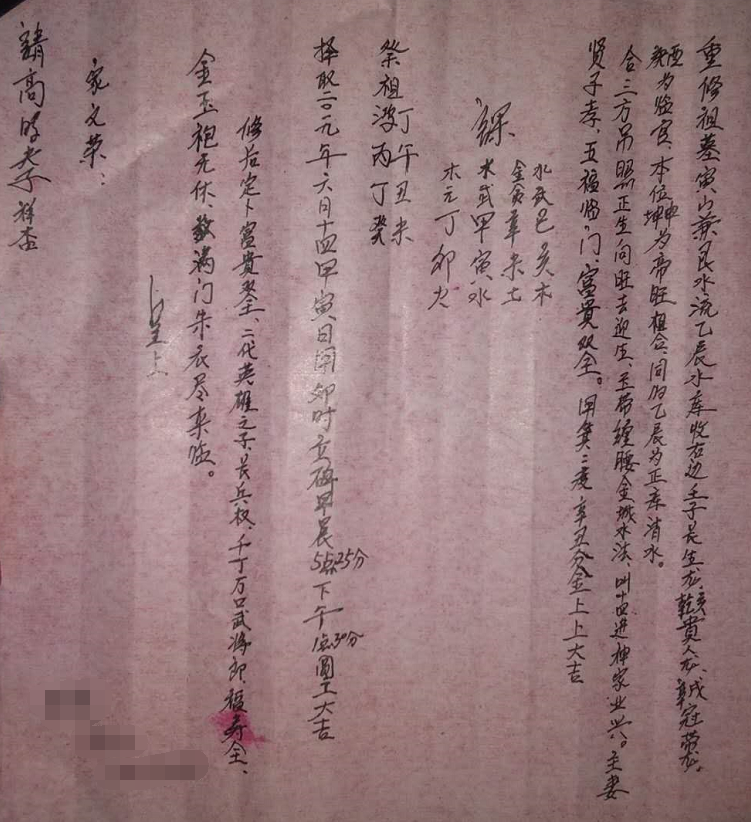 重修祖墓寅山兼艮水流乙辰水库收右边壬子长生龙、乾亥贵人龙、辛戌冠带龙、
庚酉为临官、本位坤申为帝旺组合、同归乙辰为正库消水。
合三方吊照正生向旺去迎生、玉带缠腰金城水法、叫十四进神家业兴。主妻
贤子孝、五福临门、富贵双全。用兼二度辛丑分金上上大吉
课
水武己亥木
金贪辛未土
水武甲寅水
木元丁卯火
祭祖没丁午丑未
丙丁癸
择取二0一九年六月十四甲寅日用卯时立碑早晨5点25分下午1点30分圆工大吉
修后定卜富贵双全、二代英雄之子、长兵权、千丁万口武将郎、福寿全、
金玉袍无休、教满门朱衣尽来临。
上呈上
家文荣：
请高明老子祥查